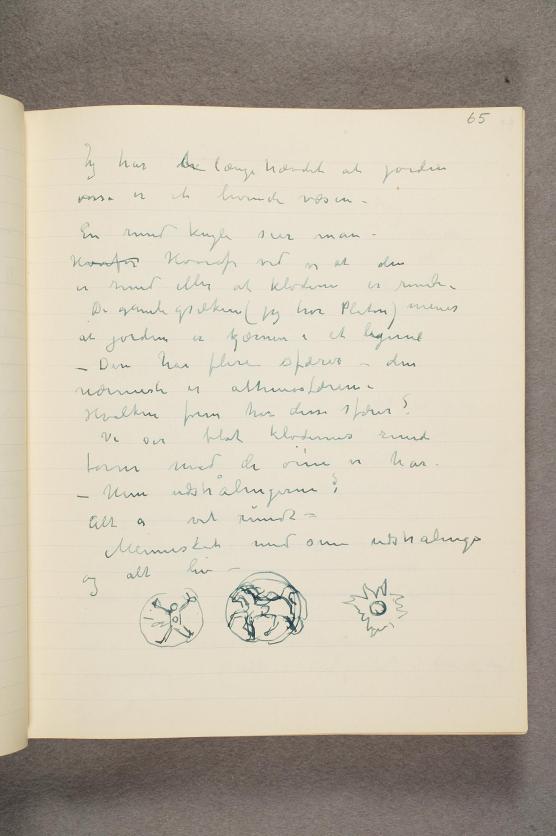 65
Jeg har længe hævdet at jorden
vorse er et levende væsen –
En rund kugle sier man –
Hvorfor Hvoraf ved vi at den
er rund eller at kloderne er runde –
De gamle grækere (jeg tror Platon) menes
at jorden er kjærnen i et legeme
– Den har flere sfærer – den
nærmeste er atthmosfæren –
Hvilken form har disse sfærer?
Vi ser blot klodernes runde
former med de øine vi har.
– Men udstrålingerne?
Alt er vel rundt –
Mennesket med sine udstralinger
og alt liv –